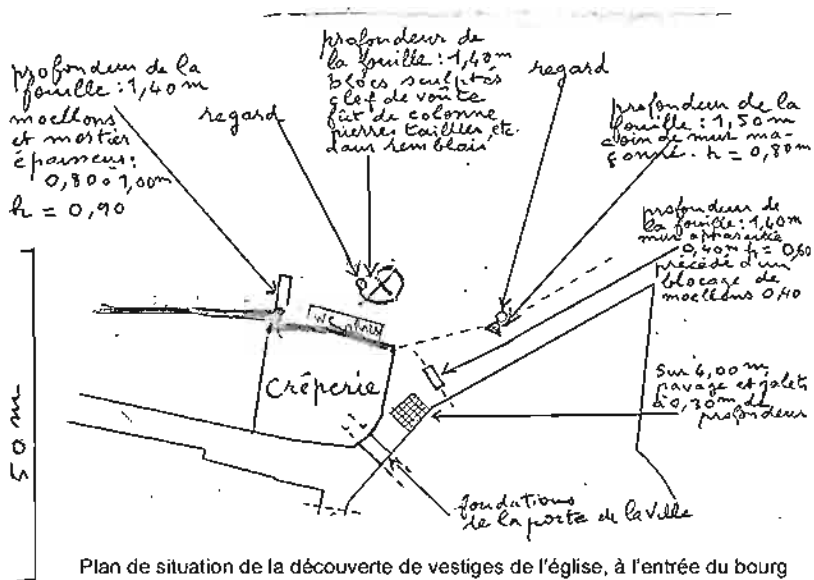 profondeur de la
fouille : 1,40 m
moellons
et mortier
épaisseur :
0,80 à 1,00 m
h = 0,90
regard
profondeur de
la fouille : 1,40 m
blocs sculptés
clef de voûte
fût de colonne
pierres taillées, etc.
dans remblais
regard
profondeur de la
fouille : 1,50 m
coin de mur ma-
çonné. h = 0,80 m
profondeur de
la fouille : 1,40 m
mur
0,40 m h = 0,60
précédé d'un
blocage de
moellons 0,40
WC
Crêperie
Sur 4,00 m,
pavage et galets
à 0,30 m de
profondeur
50 m
fondations
de la porte de la ville
Plan de situation de la découverte de vestiges de l'église, à l'entrée du bourg